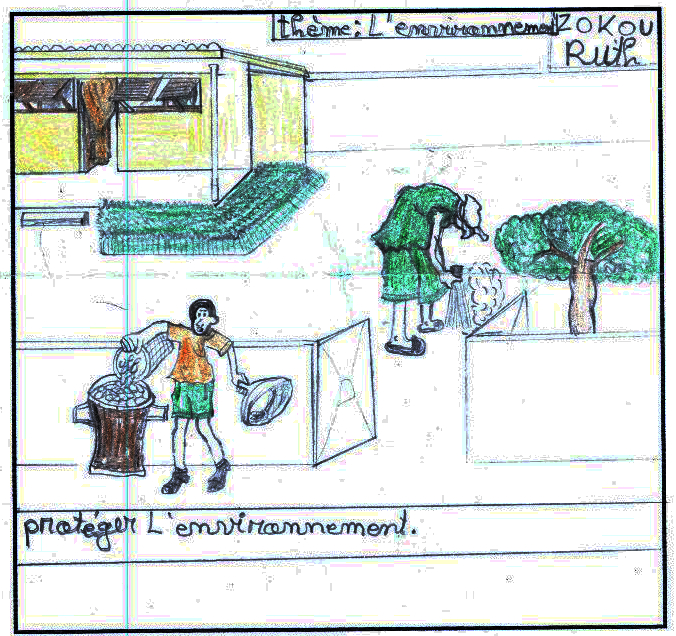 thème: L'environnement
ZOKOU
Ruth
protéger L'environnement.